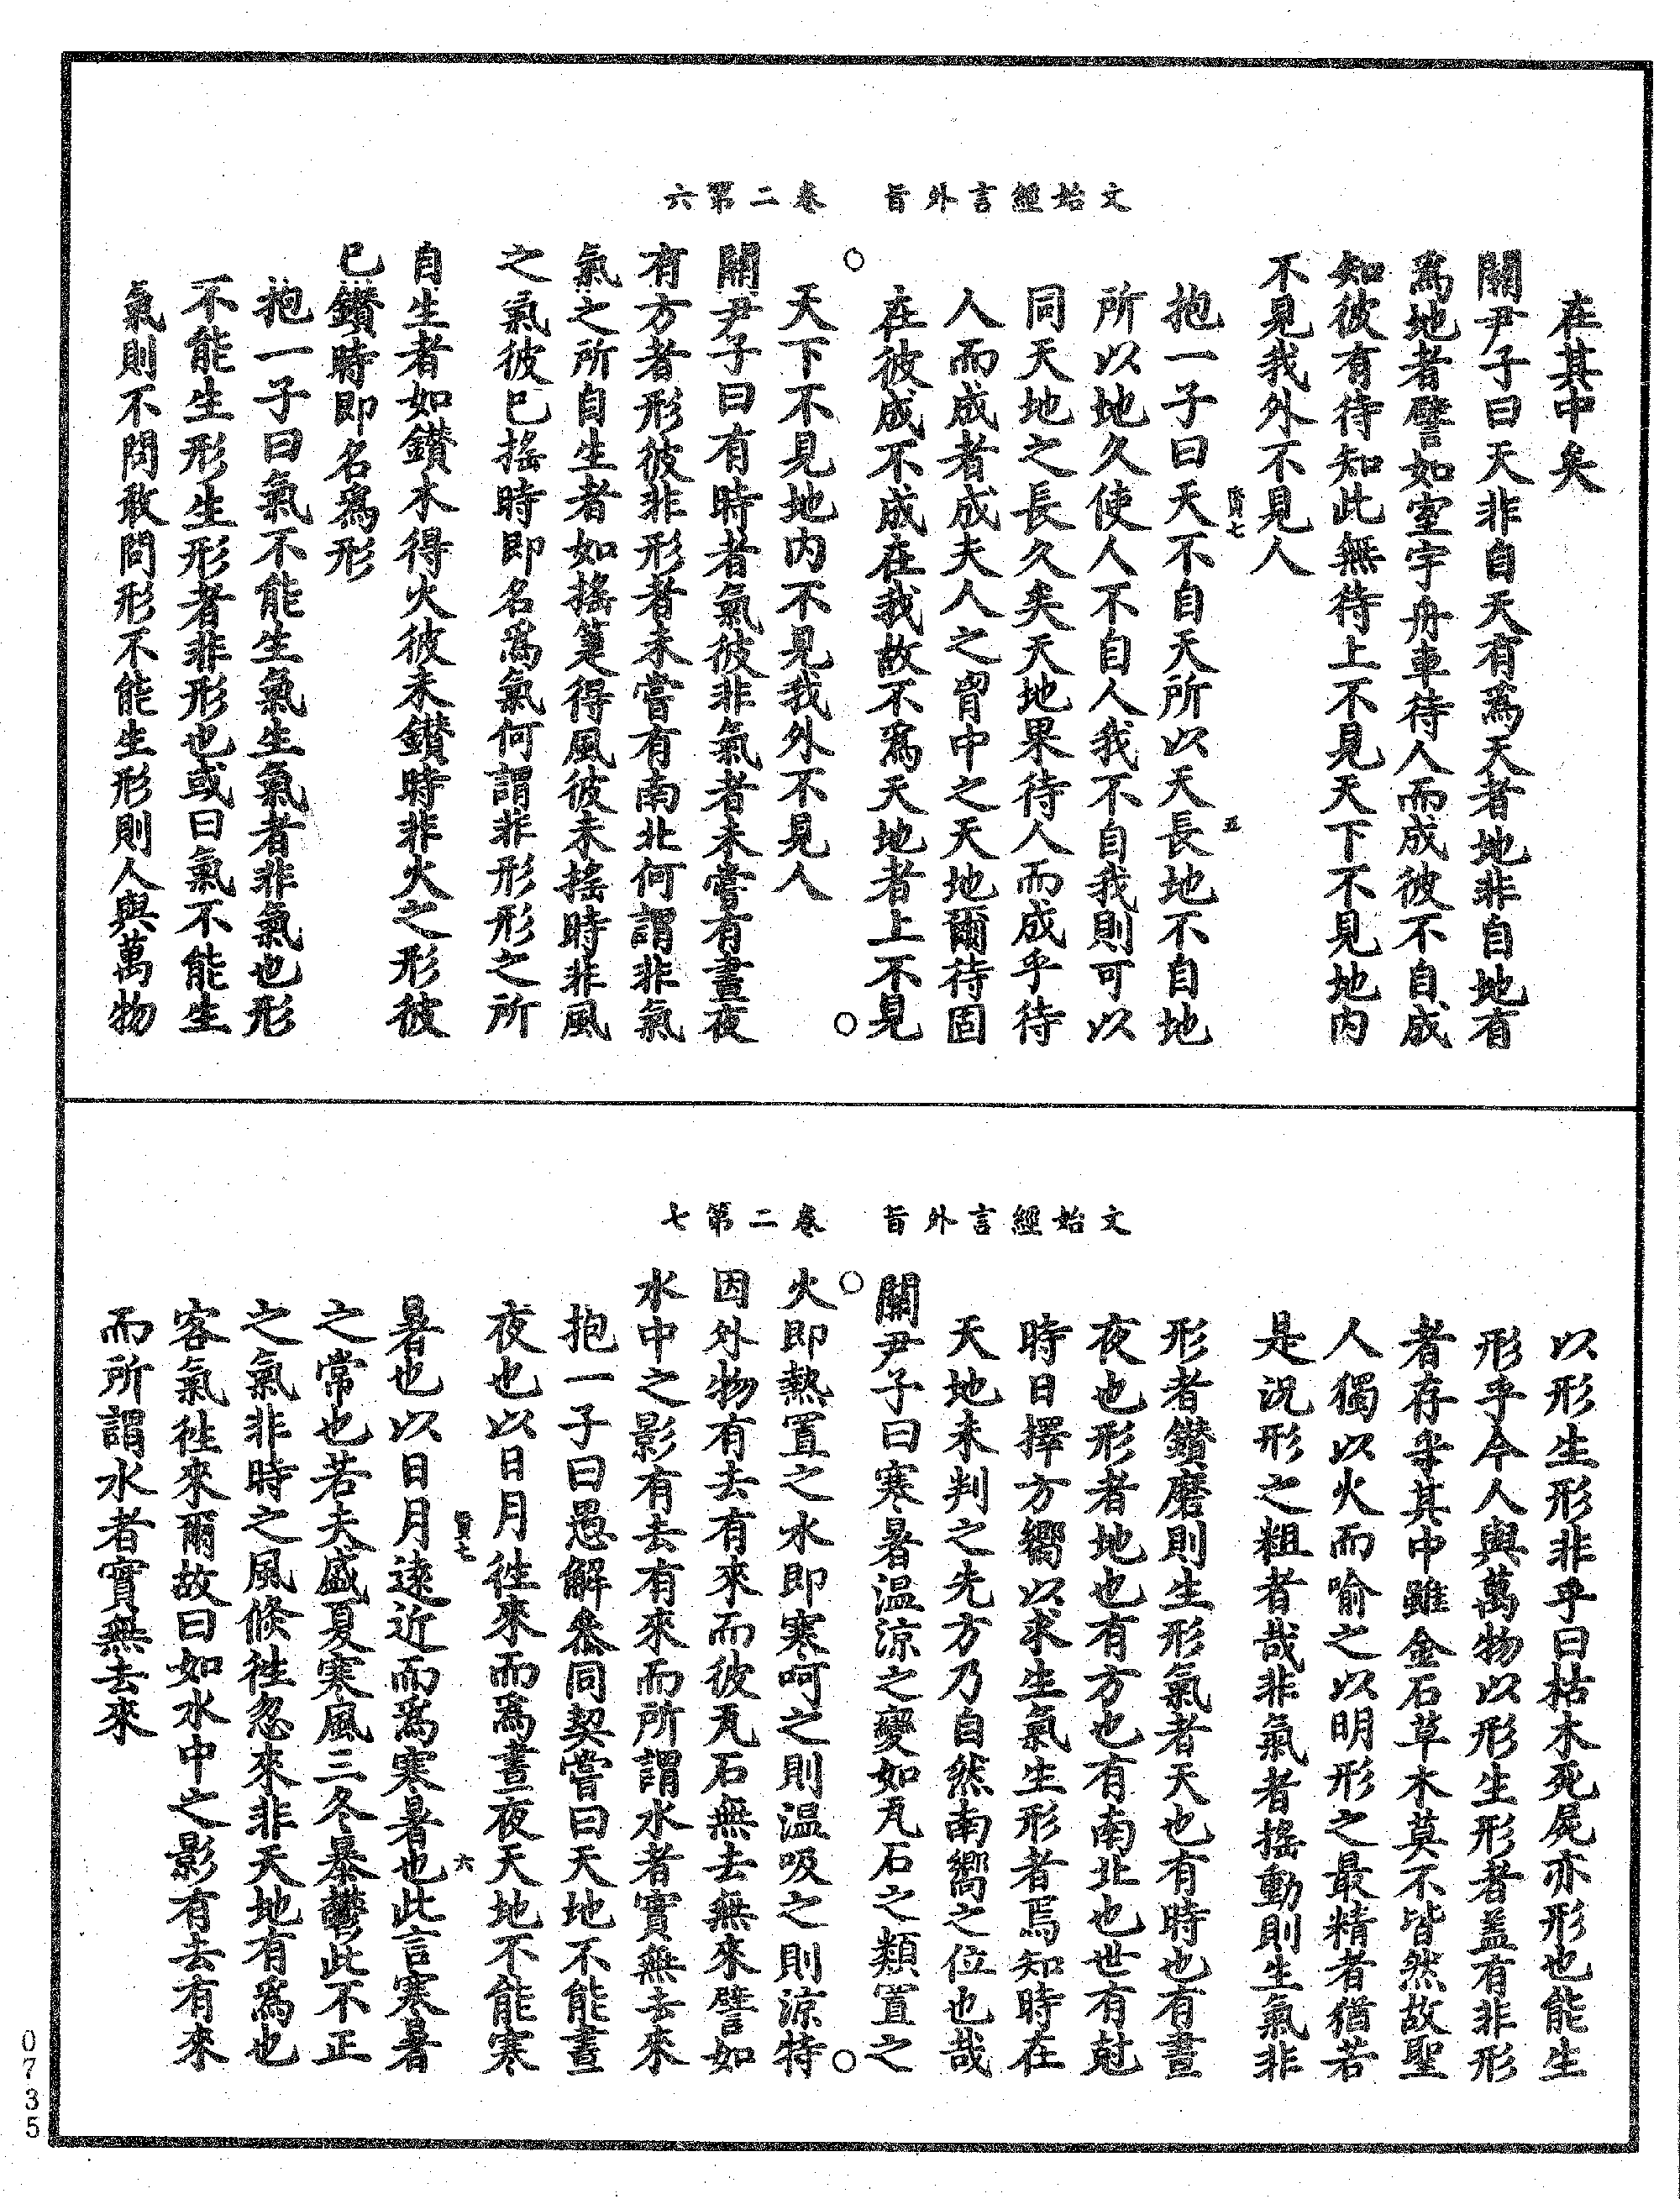 文始經言外旨　卷二第六
在其中矣
關尹子曰天非自天有爲天者地非自地有
爲地者譬如室宇舟車待人而成彼不自成
知彼有待知此無待上不見天下不見地內
不見我外不見人
抱一子曰天不自天所以天長地不自地
所以地久使人不自人我不自我則可以
同天地之長久矣天地果待人而成乎待
人而成者成夫人之胷中之天地爾待固
在彼成不成在我故不爲天地者上不見
天下不見地內不見我外不見人
關尹子曰有時者氣彼非氣者未嘗有晝夜
有方者形彼非形者未嘗有南北何謂非氣
氣之所自生者如搖箑得風彼未搖時非風
之氣彼已搖時即名爲氣何謂非形形之所
自生者如鑽木得火彼未鑽時非火之形彼
已鑽時即名爲形
抱一子曰氣不能生氣生氣者非氣也形
不能生形生形者非形也或曰氣不能生
氣則不問敢問形不能生形則人與萬物
文始經言外旨　卷二第七
以形生形非乎曰枯木死屍亦形也能生
形乎今人與萬物以形生形者盖有非形
者存乎其中雖金石草木莫不皆然故聖
人獨以火而喻之以明形之最精者猶若
是況形之粗者哉非氣者搖動則生氣非
形者鑽磨則生形氣者天也有時也有晝
夜也形者地也有方也有南北也世有尅
時日擇方嚮以求生氣生形者焉知時在
天地未判之先方乃自然南嚮之位也哉
關尹子曰寒暑温涼之變如瓦石之類置之
火即熱置之水即寒呵之則温吸之則涼特
因外物有去有來而彼瓦石無去無來譬如
水中之影有去有來而所謂水者實無去來
抱一子曰愚解叅同契嘗曰天地不能晝
夜也以日月徃來而爲晝夜天地不能寒
暑也以日月遠近而爲寒暑也此言寒暑
之常也若夫盛夏寒風三冬暴鬱此不正
之氣非時之風倏徃忽來非天地有爲也
客氣徃來爾故曰如水中之影有去有來
而所謂水者實無去來
0735